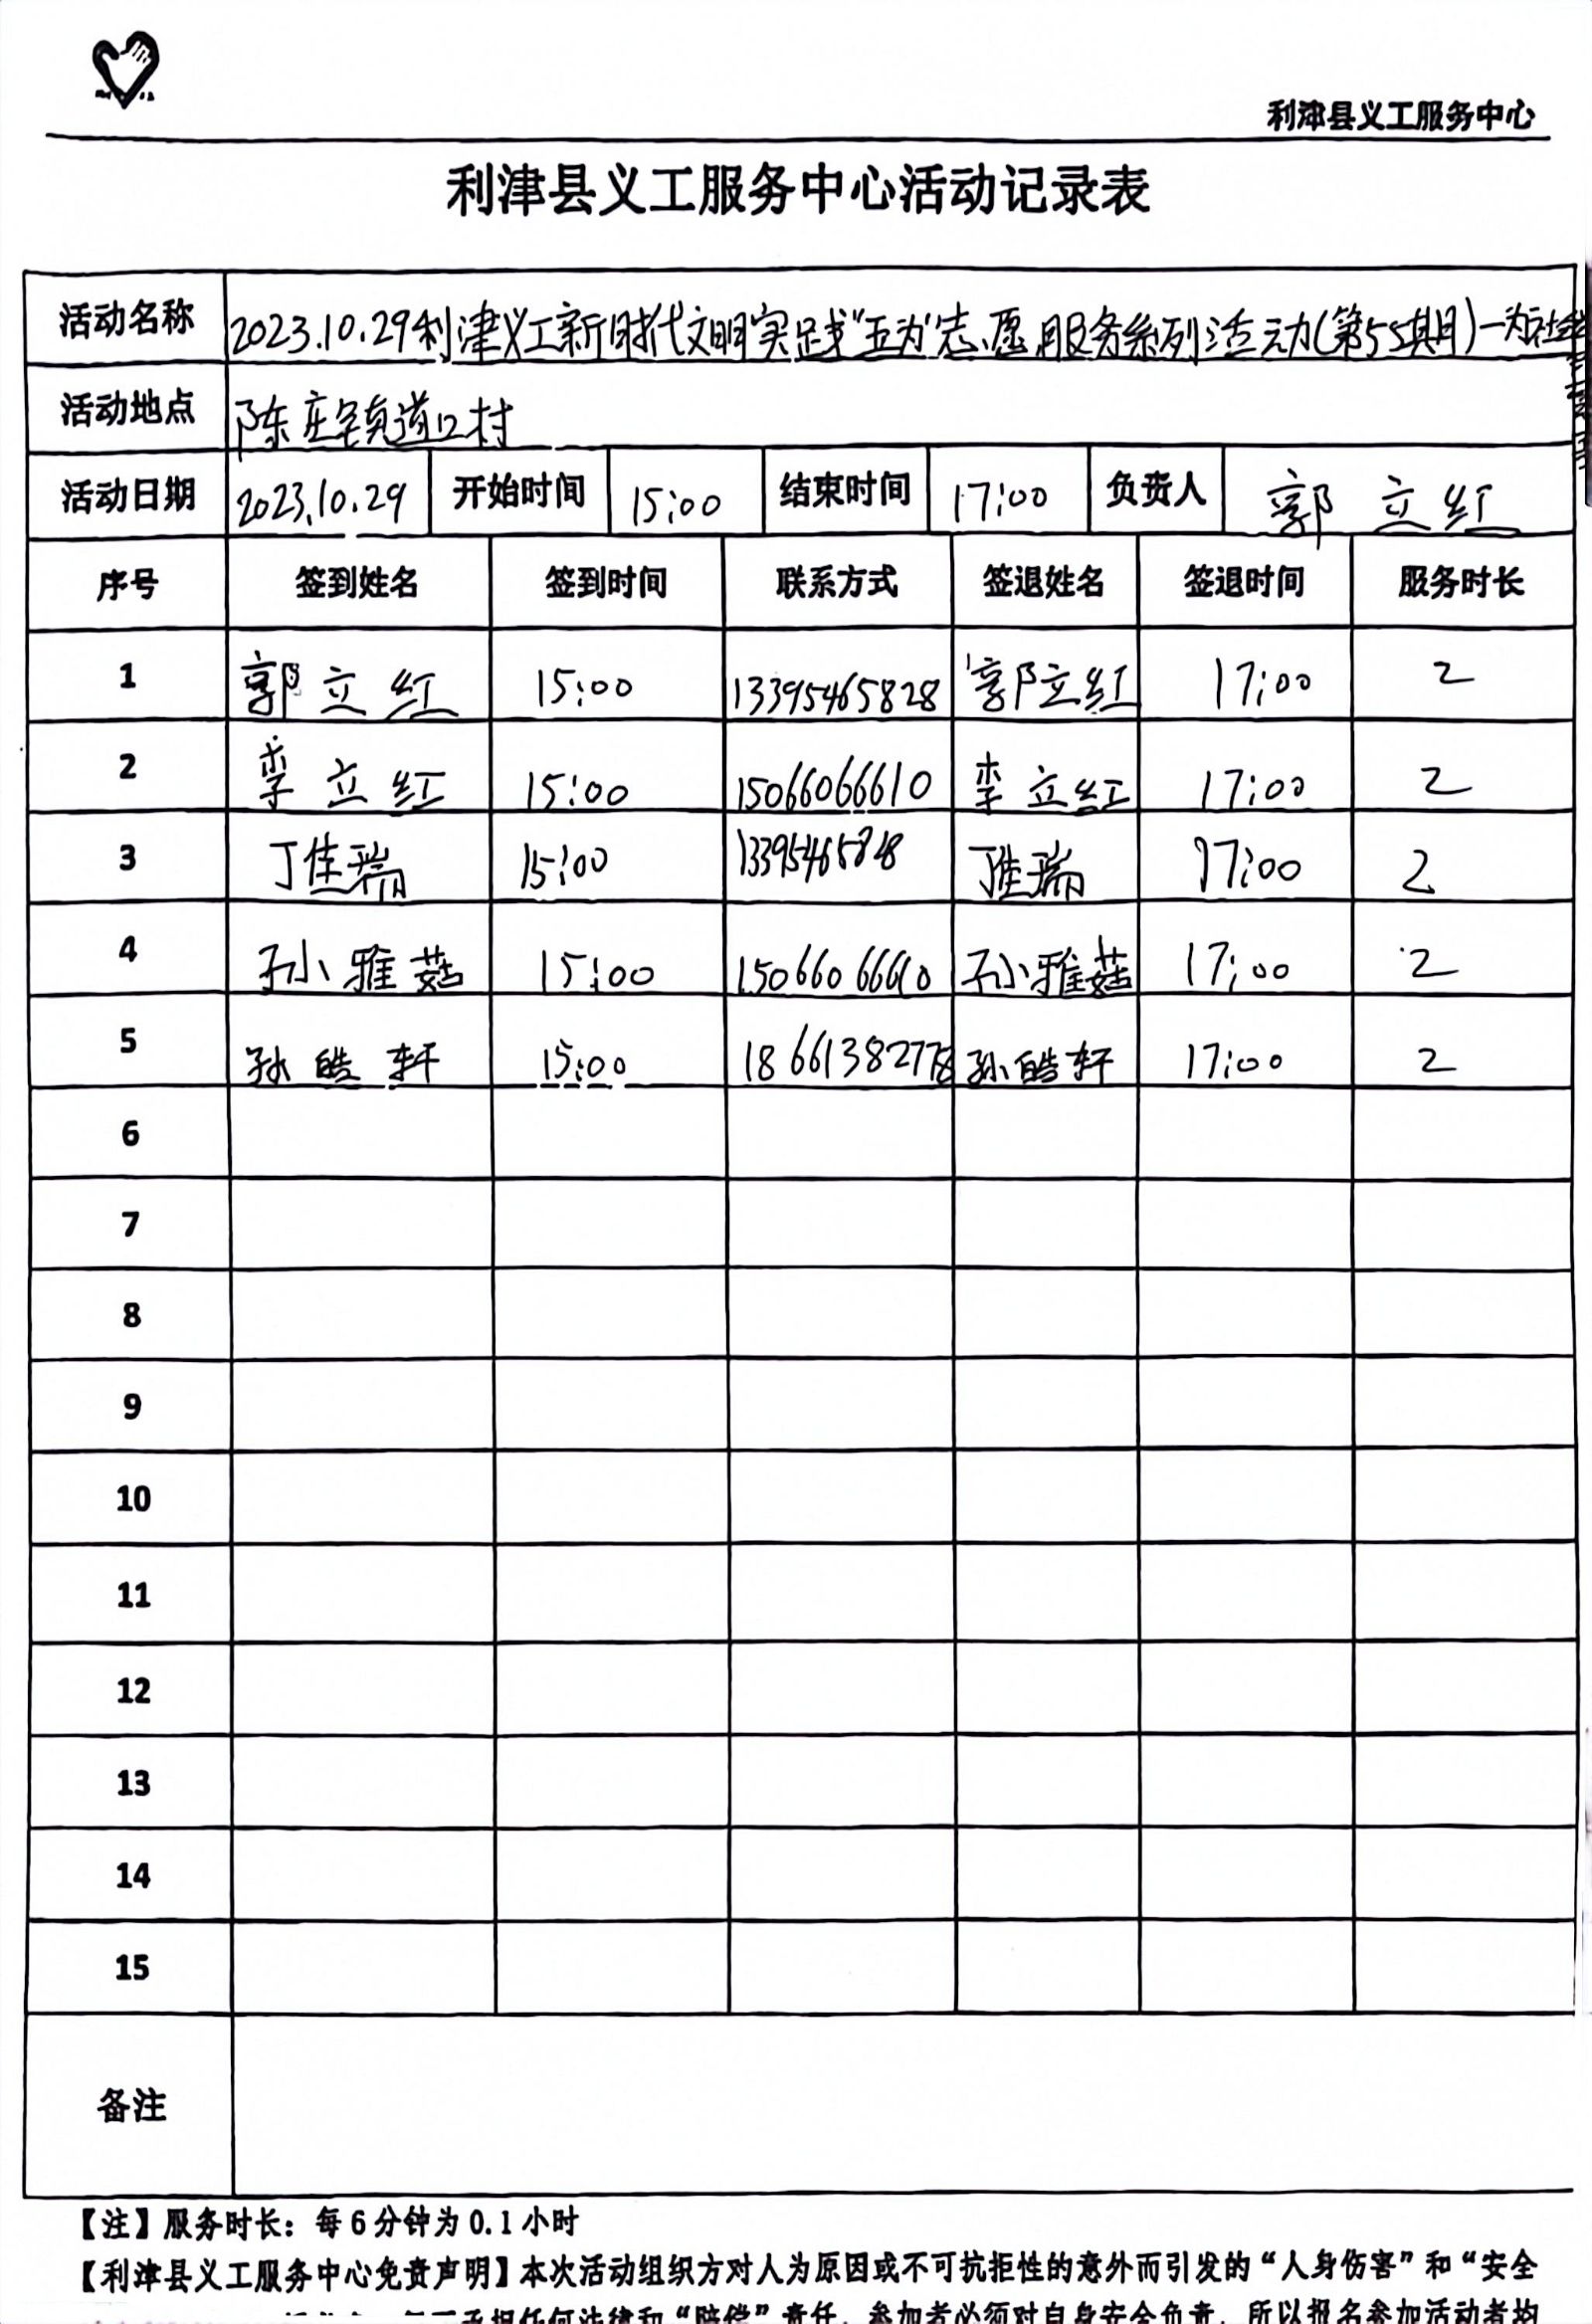 利津县义工服务中心
利津县义工服务中心活动记录表
活动名称 2023.10.29利津义工新时代文明实践"五为"志愿服务系列活动(第55期)一为社会
活动地点 陈庄镇道口村
活动日期 2023.10.29 开始时间 15:00 结束时间 17:00 负责人 郭立红
序号 签到姓名 签到时间 联系方式 签退姓名 签退时间 服务时长
1 郭立红 15:00 13395465828 郭立红 17:00 2
2 李立红 15:00 15066066610 李立红 17:00 2
3 丁佳瑞 15:00 13395465828 丁佳瑞 17:00 2
4 孙雅菇 15:00 15066066610 孙雅菇 17:00 2
5 孙皓轩 15:00 18661382778 孙皓轩 17:00 2
6
7
8
9
10
11
12
13
14
15
备注
【注】服务时长：每6分钟为0.1小时
【利津县义工服务中心免责声明】本次活动组织方对人为原因或不可抗拒性的意外而引发的“人身伤害”和“安全
承担任何法律和“赔偿”责任，参加者必须对自身安全负责，所以报名参加活动者均